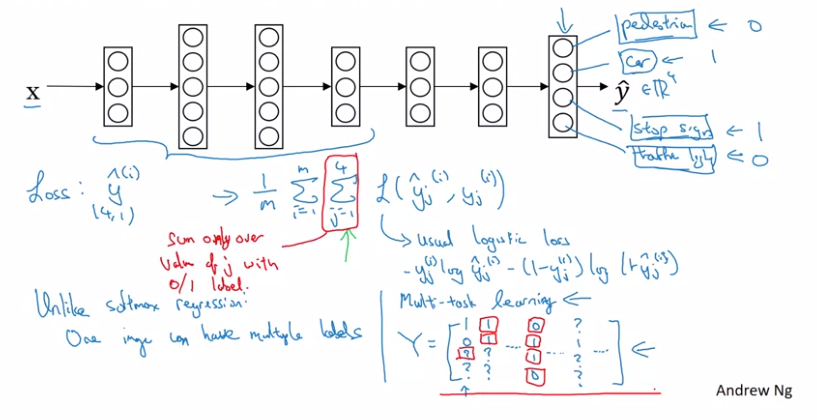 pedestrian ← 0
car ← 1
x
ŷ ∈ ℝ⁴
stop sign ← 1
traffic light ← 0
Loss: ŷ^(i) → 1/m Σ_{i=1}^{m} Σ_{j=1}^{4} L(ŷ_j^(i), y_j^(i))
(4,1)
sum only over
value of j with
0/1 label.
→ usual logistic loss
- y_j^(i) log ŷ_j^(i) - (1-y_j^(i)) log (1-ŷ_j^(i))
Unlike softmax regression:
One image can have multiple labels
Multi-task learning ←
Y = [ 1 1 0 ?
0 1 ... 1 ... 1 ...
? ? 1 ?
? ? 0 ? ] ←
Andrew Ng